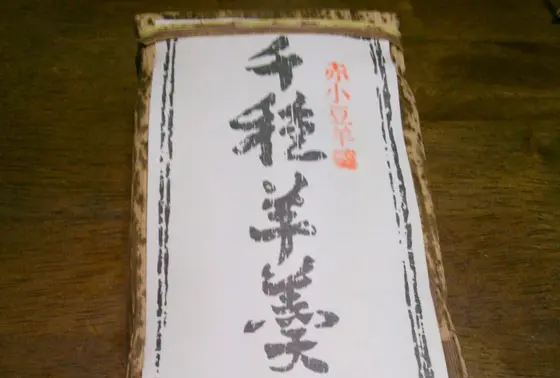 赤小豆羊羹
千種羊羹